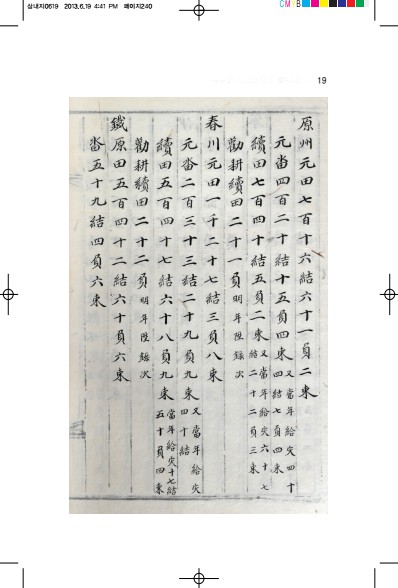 삼내지0619 2013.6.19 4:41 PM 페이지240
CM
19
原州元田七百十六結六十一負二束
元畓四百二十結十五負四束又當年給灾四十四結七負四束
續田七百四十結五負二束又當年給灾六十七結二十二負三束
勸耕續田二十一負明年陞錄次
春川元田一千二十七結三負八束
元畓二百三十三結二十九負九束又當年給灾四十結
續田五百四十七結六十八負九束當年給灾十七結五十負四束
勸耕續田二十二負明年陞錄次
鐵原田五百四十二結六十負六束
畓五十九結四負六束